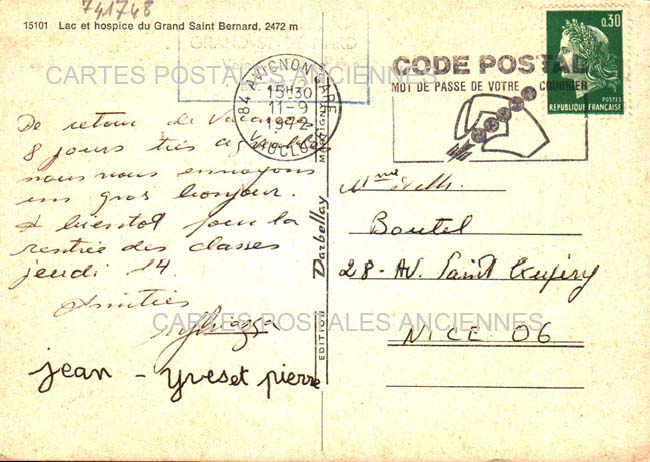 741748
15101 Lac et hospice du Grand Saint Bernard, 2472 m
GRAND ST BERNARD
CARTES POSTALES ANCIENNES
84 AVIGNON GARE
15H30
11-9
1972
VAUCLUSE
CODE POSTAL
MOT DE PASSE DE VOTRE COURRIER
0.30
POSTES
REPUBLIQUE FRANÇAISE
De retour de Vacances
8 jours très agréables
nous vous envoyons
un gros bonjour.
A bientôt pour la
rentrée des classes
jeudi 14.
Amitiés
jean - yves et pierre
EDITION Darbellay MARTIGNY
Mme et M.
Boutel
28 - AV. Saint Exupéry
NICE 06
CARTES POSTALES ANCIENNES